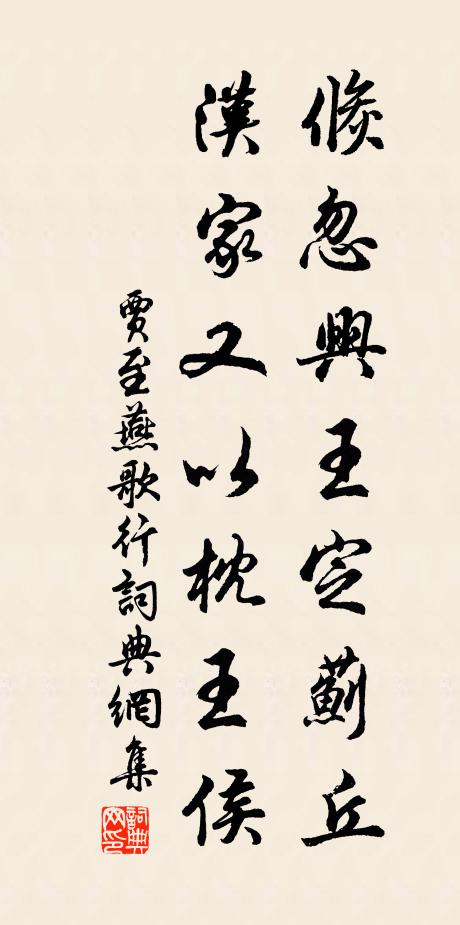 倐忽興王定薊丘
漢家又以枕王侯
賈至燕歌行詞典網集
詞典網印